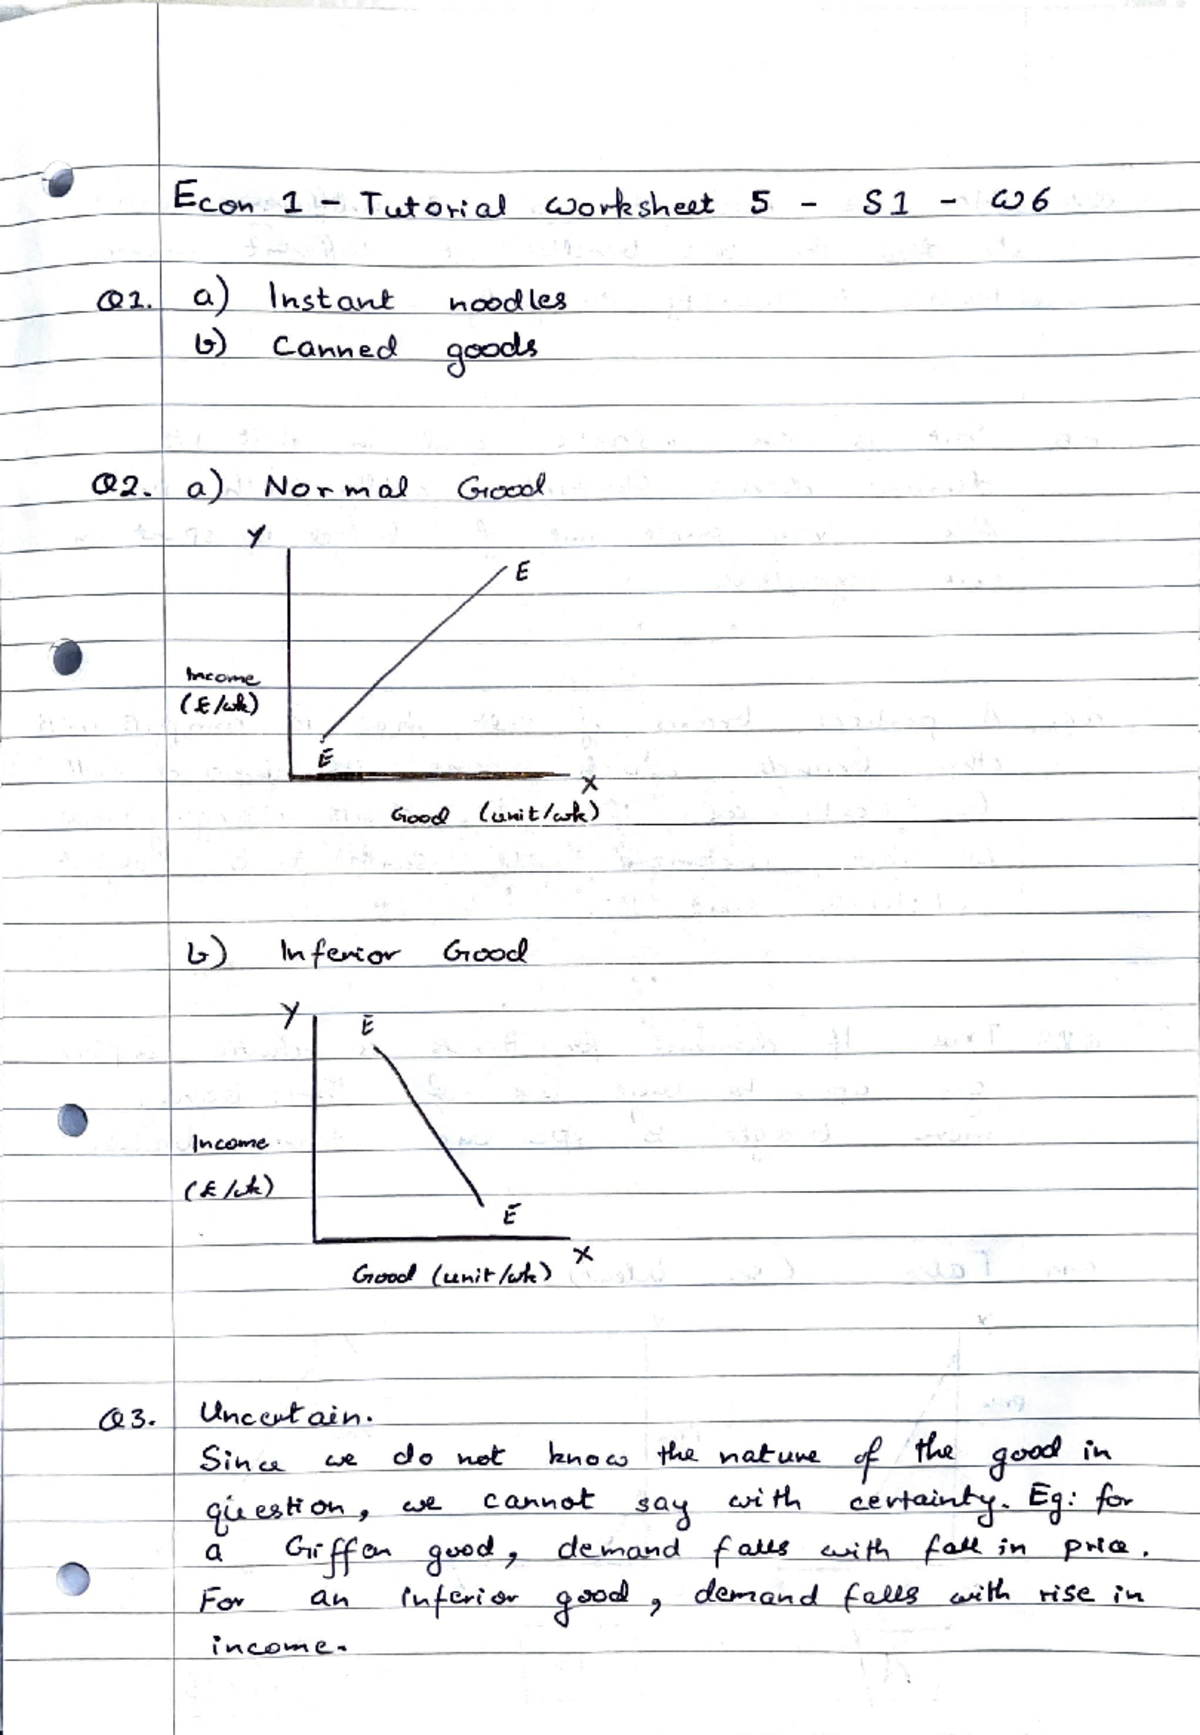 Econ 1 - Tutorial Worksheet 5 - S1 - W6
Q1. a) Instant noodles
b) Canned goods
Q2. a) Normal Good
Y
E
Income
(£/wk)
E
X
Good (unit/wk)
b) Inferior Good
Y
E
Income
(£/wk)
E
X
Good (unit/wk)
Q3. Uncertain.
Since we do not know the nature of the good in
question, we cannot say with certainty. Eg: for
a Giffen good, demand falls with fall in price.
For an inferior good, demand falls with rise in
income.